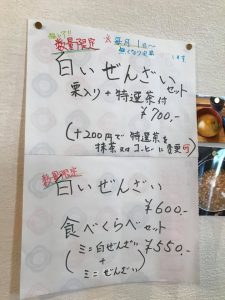 数量限定 ※毎月1日〜
無くなり次第
白いぜんざい
セット
栗入り + 特選茶付
¥700.-
(+200円で 特選茶を
抹茶又はコーヒーに変更可)
数量限定
白いぜんざい
¥600.-
食べくらべセット
(ミニ白ぜんざい ¥550.-
+
ミニぜんざい)